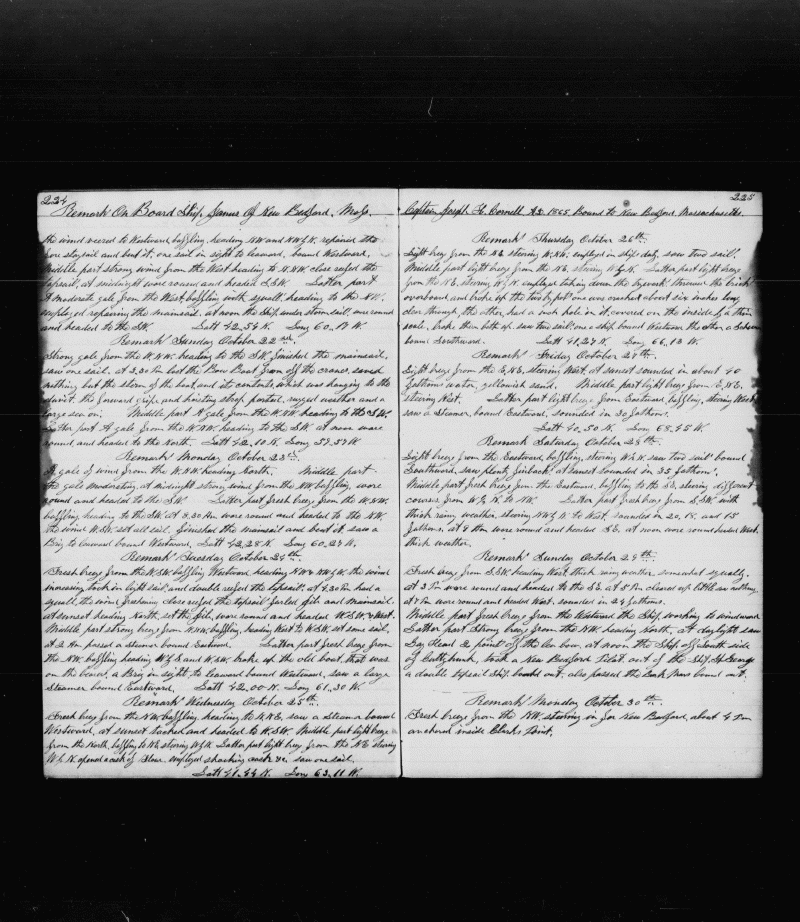 224
Remark On Board Ship, Janus Of New Bedford, Mass.
the wind veered to Westward, baffling, heading NW and NW by N. repaired the
fore staysail and bent it, one sail in sight to leeward, bound Westward.
Middle part strong wind from the West heading to N.NW. close reefed the
topsail, at midnight wore round and headed S.SW. Latter part
A moderate gale from the West baffling with squall, heading to the NW.
employed repairing the mainsail, at noon the Ship under storm sail, wore round
and headed to the SW. Latt 42..54 N. Long 60..17 W.
Remark Sunday October 22nd.
Strong gale from the W.NW. heading to the S.W. finished the mainsail.
saw one sail. at 3.30 Pm lost the Bow Boat from off the cranes, saved
nothing but the stern of the boat, and its contents, which was hanging to the
davit. the forward grip, and hoisting strap parted, rugged weather and a
large sea on. Middle part A gale from the W.NW. heading to the S.W.
Latter part A gale from the W.NW. heading to the S.W. at noon wore
round, and headed to the North. Latt 42..10 N. Long 59..57 W.
Remark Monday October 23rd.
A gale of wind from the W.NW. heading North. Middle part
the gale moderating, at midnight strong wind from the NW. baffling, wore
round and headed to the SW. Latter part fresh breeze from the W.NW.
baffling heading to the SW. at 8.30 Am. wore round and headed to the NW.
the wind W.SW. set all sail, finished the mainsail and bent it, saw a
Brig to leeward bound Westward, Latt 42..28 N. Long 60..27 W.
Remark Tuesday October 24th.
Fresh breeze from the W.SW. baffling Westward heading NW & NW by N. the wind
increasing took in light sail, and double reefed the topsail. at 4.30 Pm had a
squall, the wind freshening close reefed the topsail furled jib and mainsail.
at sunset heading North, set the jib, wore round and headed W.SW. & West.
Middle part strong breeze from N.NW. baffling, heading West to W.SW. set some sail,
at 2 Am passed a steamer bound Eastward, Latter part fresh breeze from
the NW. baffling heading W by S and W.SW. broke up the old boat, that was
on the bearer, a Brig in sight to leeward bound Westward, saw a large
Steamer bound Eastward, Latt 42..00 N. Long 61..30 W.
Remark Wednesday October 25th.
Fresh breeze from the NW. baffling, heading to N.NE. saw a Steamer bound
Westward, at sunset tacked and headed to W.SW. Middle part light breeze
from the North, baffling to NE. steering W by N. Latter part light breeze from the NE steering
W by N. opened a cask of flour. employed shooking casks &c. saw one sail.
Latt 41..44 N. Long 63..11 W.
225
Captain Joseph H. Cornell AD. 1865. Bound to New Bedford, Massachusetts.
Remark Thursday October 26th.
Light breeze from the NE. steering W.NW. employed in ships duty, saw two sail.
Middle part light breeze from the NE. steering W by N. Latter part light breeze
from the NE. steering W by N. employed taking down the tryworks. threw the brick
overboard and broke up the two try pots one was cracked about six inches long
clear through, the other had a rust hole in it, covered on the inside by a thin
scale, broke them both up. saw two sail. one a ship bound Westward the other a Schooner
bound Southward. Latt 41..27 N. Long 66..13 W.
Remark Friday October 27th.
Light breeze from the E.NE. steering West, at sunset sounded in about 40
fathoms water, yellowish sand. Middle part light breeze from E.NE.
steering West. Latter part light breeze from Eastward, baffling, steering West
saw a Steamer, bound Eastward, sounded in 30 fathoms.
Latt 40..50 N. Long 68..45 W.
Remark Saturday October 28th.
Light breeze from the Eastward, baffling, steering W by N. saw two sail bound
Southward, saw plenty finbacks. at sunset sounded in 35 fathoms.
Middle part fresh breeze from the Eastward, baffling to the SE. steering different
courses from W by N. to NW. Latter part fresh breeze from S.SW. with
thick rainy weather, steering NW by N. to West, sounded in 20, 18, and 15
fathoms. at 9 Am wore round and headed SE. at noon wore round headed West.
thick weather.
Remark Sunday October 29th.
Fresh breeze from S.SW. heading West, thick rainy weather, somewhat squally.
at 3 Pm wore round and headed to the SE. at 5 Pm cleared up little saw nothing,
at 7 Pm wore round and headed West. sounded in 29 fathoms.
Middle part fresh breeze from the Westward the Ship working to windward
Latter part Strong breeze from the NW. heading North, At daylight saw
Gay Head 2 points off the lee bow, at noon the Ship off South side
of Cuttyhunk, took a New Bedford Pilot out of the Ship St George
a double topsail Ship bound out. also passed the Bark Mars bound out.
Remark Monday October 30th.
Fresh breeze from the NW. steering in for New Bedford, about 4 Pm
anchored inside Clarks Point.